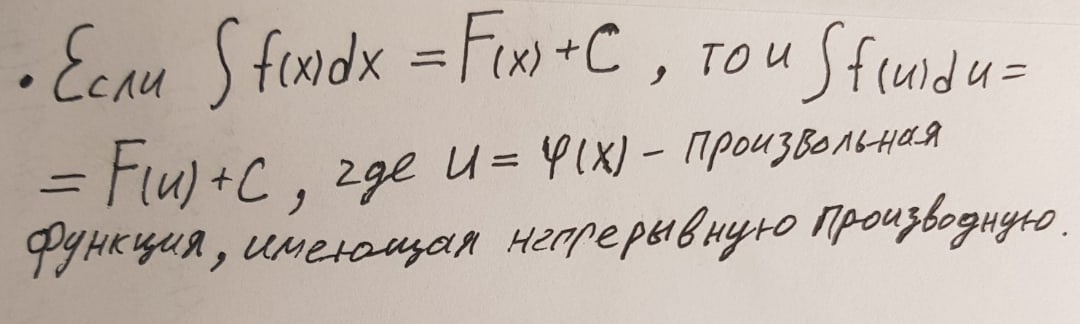 • Если ∫f(x)dx = F(x) + C, то и ∫f(u)du =
= F(u) + C, где u = φ(x) – произвольная
функция, имеющая непрерывную производную.